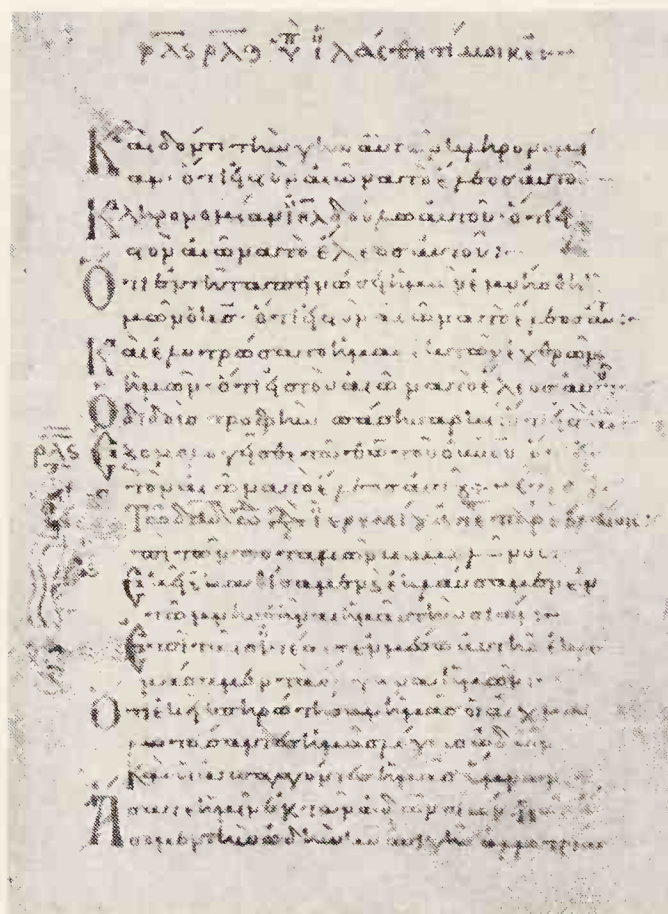 ρλς ρλθ ἱλάσθητί μοι κε
Καὶ δόντι τὴν γῆν αὐτῶν κληρονομί
αν· ὅτι εἰς τὸν αἰῶνα τὸ ἔλεος αὐτοῦ
Κληρονομίαν ιηλ δούλω αὐτοῦ· ὅτι εἰς
τὸν αἰῶνα τὸ ἔλεος αὐτοῦ:~
Ὅτι ἐν τῇ ταπεινώσει ἡμῶν ἐμνήσθη ἡ
μῶν ὁ κς· ὅτι εἰς τὸν αἰῶνα τὸ ἔλεος αὐτ:~
Καὶ ἐλυτρώσατο ἡμᾶς ἐκ τῶν ἐχθρῶν
ἡμῶν· ὅτι εἰς τὸν αἰῶνα τὸ ἔλεος αὐτ
Ὁ διδοὺς τροφὴν πάσῃ σαρκί· ὅτι εἰς
ρλς Ἐξομολογεῖσθε τῶ θῶ τοῦ οὐνου ὅτι
τὸν αἰῶνα τὸ ἔλεος
Τῶ δαδ
ἐπὶ τῶν ποταμῶν
ἐκεῖ ἐκαθίσαμεν καὶ ἐκλαύσαμεν ἐν
τῶ μνησθῆναι ἡμᾶς τὴν σιών:~
Ἐπὶ ταῖς ἰτέαις ἐν μέσω αὐτῆς ἐκρε
μάσαμεν τὰ ὄργανα ἡμῶν:~
Ὅτι ἐκεῖ ἐπηρώτησαν ἡμᾶς οἱ αἰχμα
λωτεύσαντες ἡμᾶς λόγους ὠδῶν
Καὶ οἱ ἀπαγαγόντες ἡμᾶς ὕμνον
Ἄσατε ἡμῖν ἐκ τῶν ὠδῶν σιών· πῶς
ἄσωμεν τὴν ὠδὴν κυ ἐπὶ γῆς ἀλλοτρίας